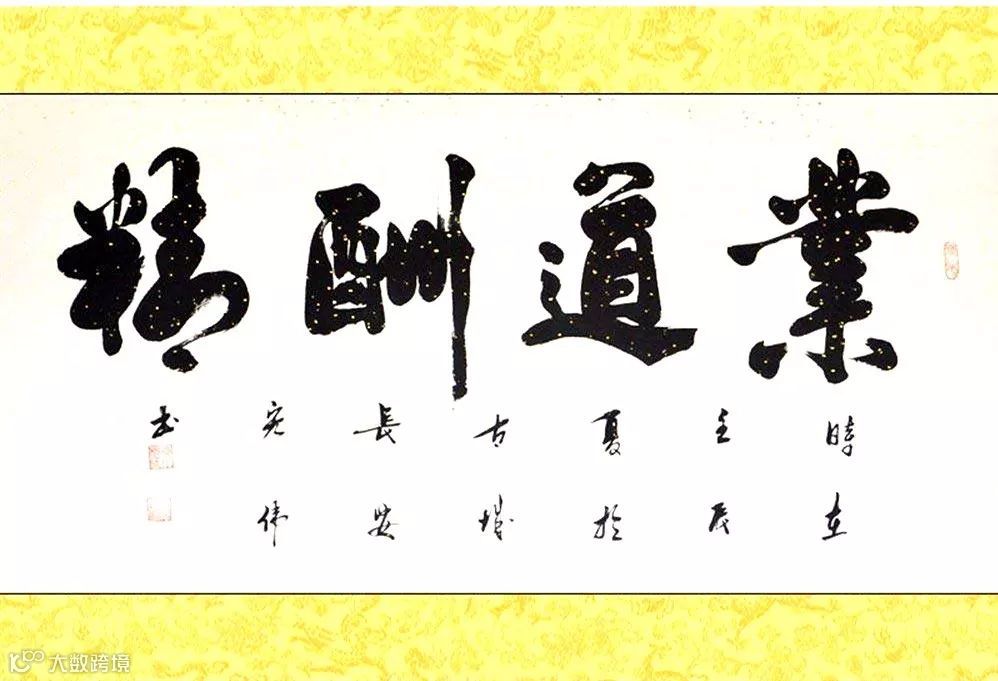 業道酬精
時在
壬辰
夏於
古城
長安
偉
書
大数跨境